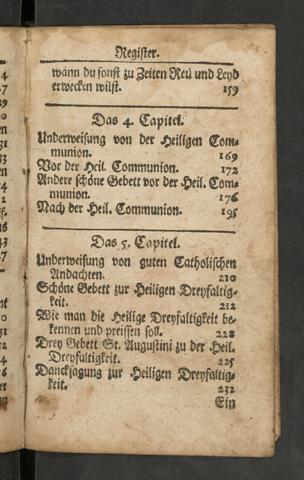 Register.
wann du sonst zu Zeiten Reü und Leyd
erwecken wilst. 159
Das 4. Capitel.
Underweisung von der Heiligen Com-
munion. 169
Vor der Heil. Communion. 172
Andere schöne Gebett vor der Heil. Com-
munion. 176
Nach der Heil. Communion. 195
Das 5. Capitel.
Underweisung von guten Catholischen
Andachten. 210
Schöne Gebett zur Heiligen Dreyfaltig-
keit. 212
Wie man die Heilige Dreyfaltigkeit be-
kennen und preissen soll. 228
Drey Gebett St. Augustini zu der Heil.
Dreyfaltigkeit. 225
Dancksagung zur Heiligen Dreyfaltig-
keit. 232
Ein